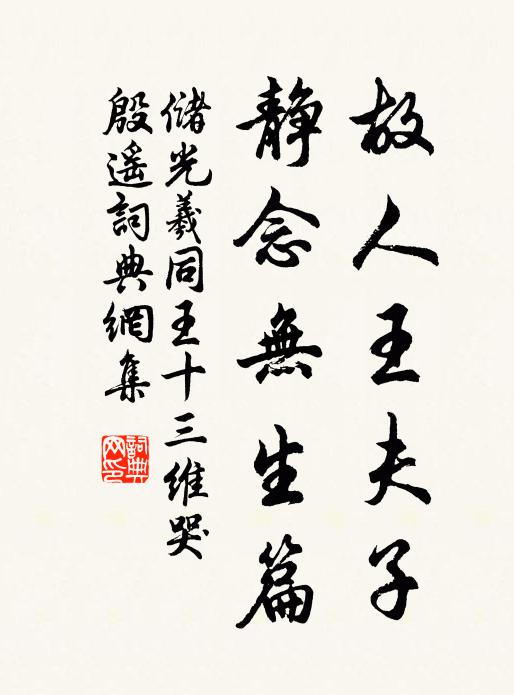 故人王夫子
靜念無生篇
儲光羲同王十三維哭
殷遥詞典網集
詞典
网印